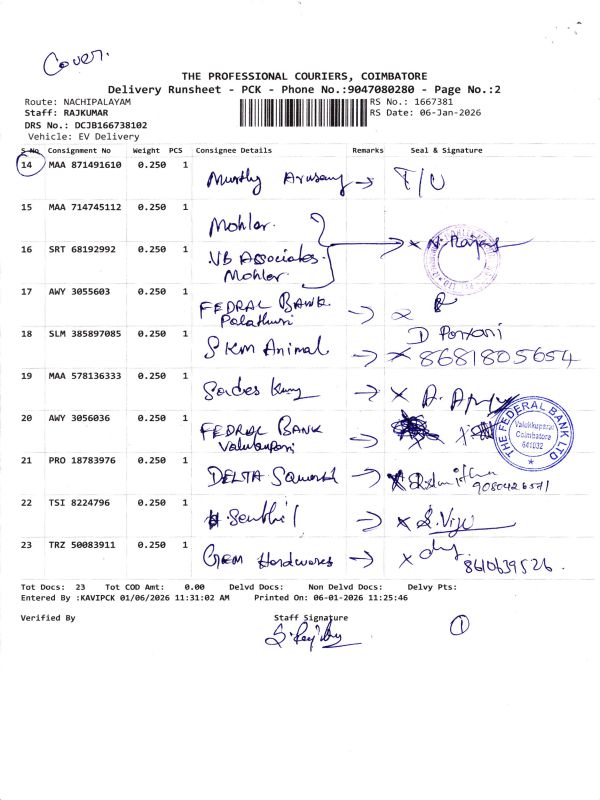 Cover.
THE PROFESSIONAL COURIERS, COIMBATORE
Delivery Runsheet - PCK - Phone No.:9047080280 - Page No.:2
Route: NACHIPALAYAM RS No.: 1667381
Staff: RAJKUMAR RS Date: 06-Jan-2026
DRS No.: DCJB166738102
Vehicle: EV Delivery
S No Consignment No Weight PCS Consignee Details Remarks Seal & Signature
14 MAA 871491610 0.250 1 T/U
15 MAA 714745112 0.250 1 Mohler.
16 SRT 68192992 0.250 1 VB Associates.
Mohler.
17 AWY 3055603 0.250 1 FEDRAL BANK
Palathuri
18 SLM 385897085 0.250 1 SKM Animal 8681805654
19 MAA 578136333 0.250 1
20 AWY 3056036 0.250 1 FEDRAL BANK
THE FEDERAL BANK LTD
Valukkuparai
Coimbatore
641032
21 PRO 18783976 0.250 1 DELTA 9080426571
22 TSI 8224796 0.250 1 Senthil S. Viju
23 TRZ 50083911 0.250 1 GEM Hardwares 8610639526.
Tot Docs: 23 Tot COD Amt: 0.00 Delvd Docs: Non Delvd Docs: Delvy Pts:
Entered By :KAVIPCK 01/06/2026 11:31:02 AM Printed On: 06-01-2026 11:25:46
Verified By Staff Signature
1